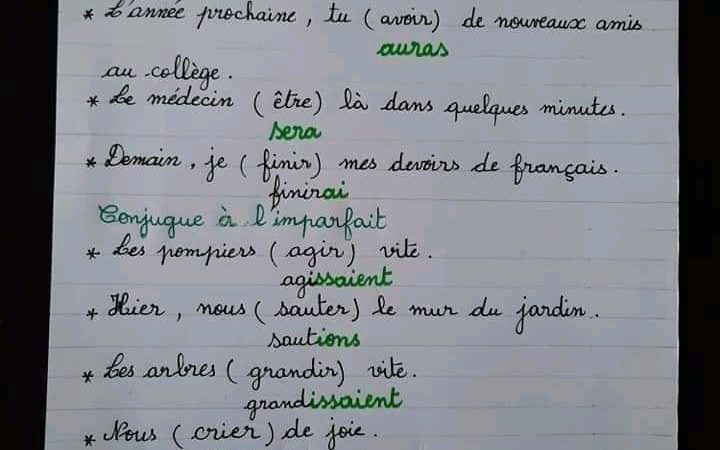 * L'année prochaine, tu (avoir) de nouveaux amis
auras
au collège.
* Le médecin (être) là dans quelques minutes.
sera
* Demain, je (finir) mes devoirs de français.
finirai
Conjugue à l'imparfait
* Les pompiers (agir) vite.
agissaient
* Hier, nous (sauter) le mur du jardin.
sautions
* Les arbres (grandir) vite.
grandissaient
* Nous (crier) de joie.